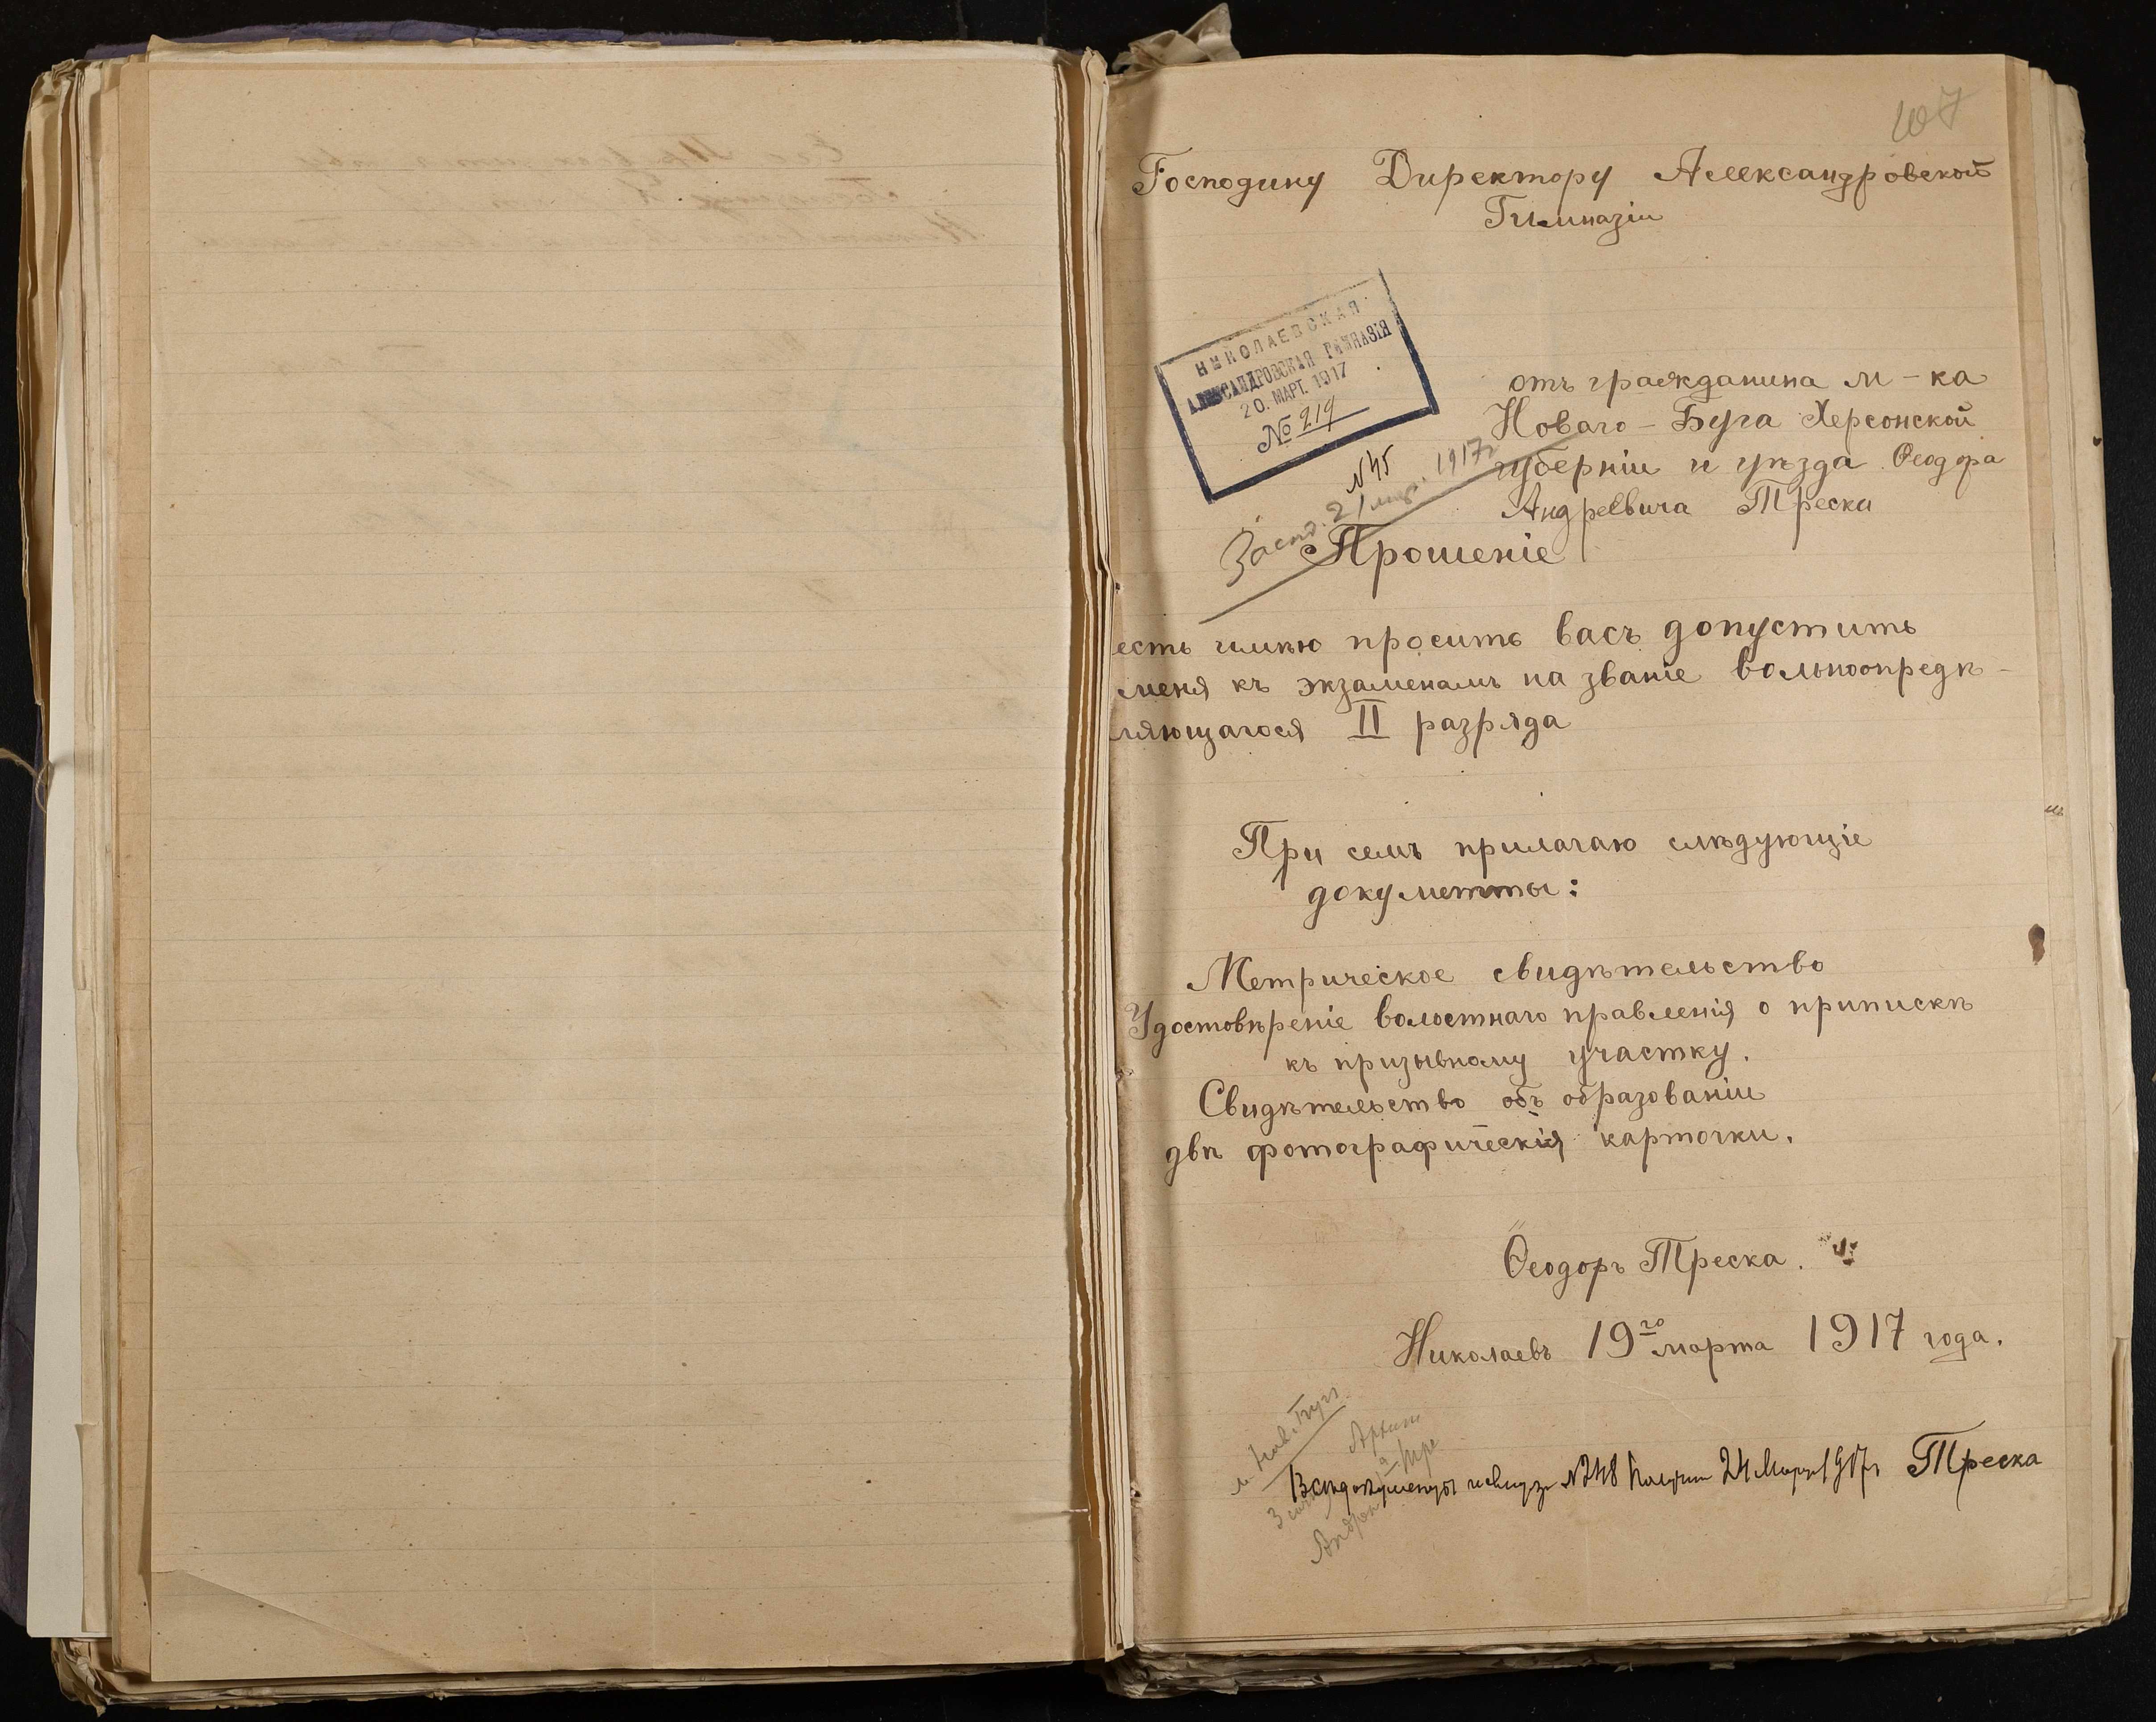 107
Господину Директору Александровской
Гимназіи
НИКОЛАЕВСКАЯ
АЛЕКСАНДРОВСКАЯ ГИМНАЗІЯ
20. МАРТ. 1917
№ 219
N 45
1917г
отъ гражданина м-ка
Новаго-Буга Херсонской
губерніи и уѣзда Ѳеодора
Андреевича Треска
Прошеніе
есть имѣю просить васъ допустить
меня къ экзаменамъ на званіе вольноопредѣ-
ляющагося II разряда
При семъ прилагаю слѣдующіе
документы:
Метрическое свидѣтельство
Удостовѣреніе волостнаго правленія о припискѣ
къ призывному участку.
Свидѣтельство объ образованіи
двѣ фотографическія карточки.
Ѳеодоръ Треска.
Николаевъ 19го марта 1917 года.
м. Нов. Бугъ
N 248 24 Марта 1917г Треска